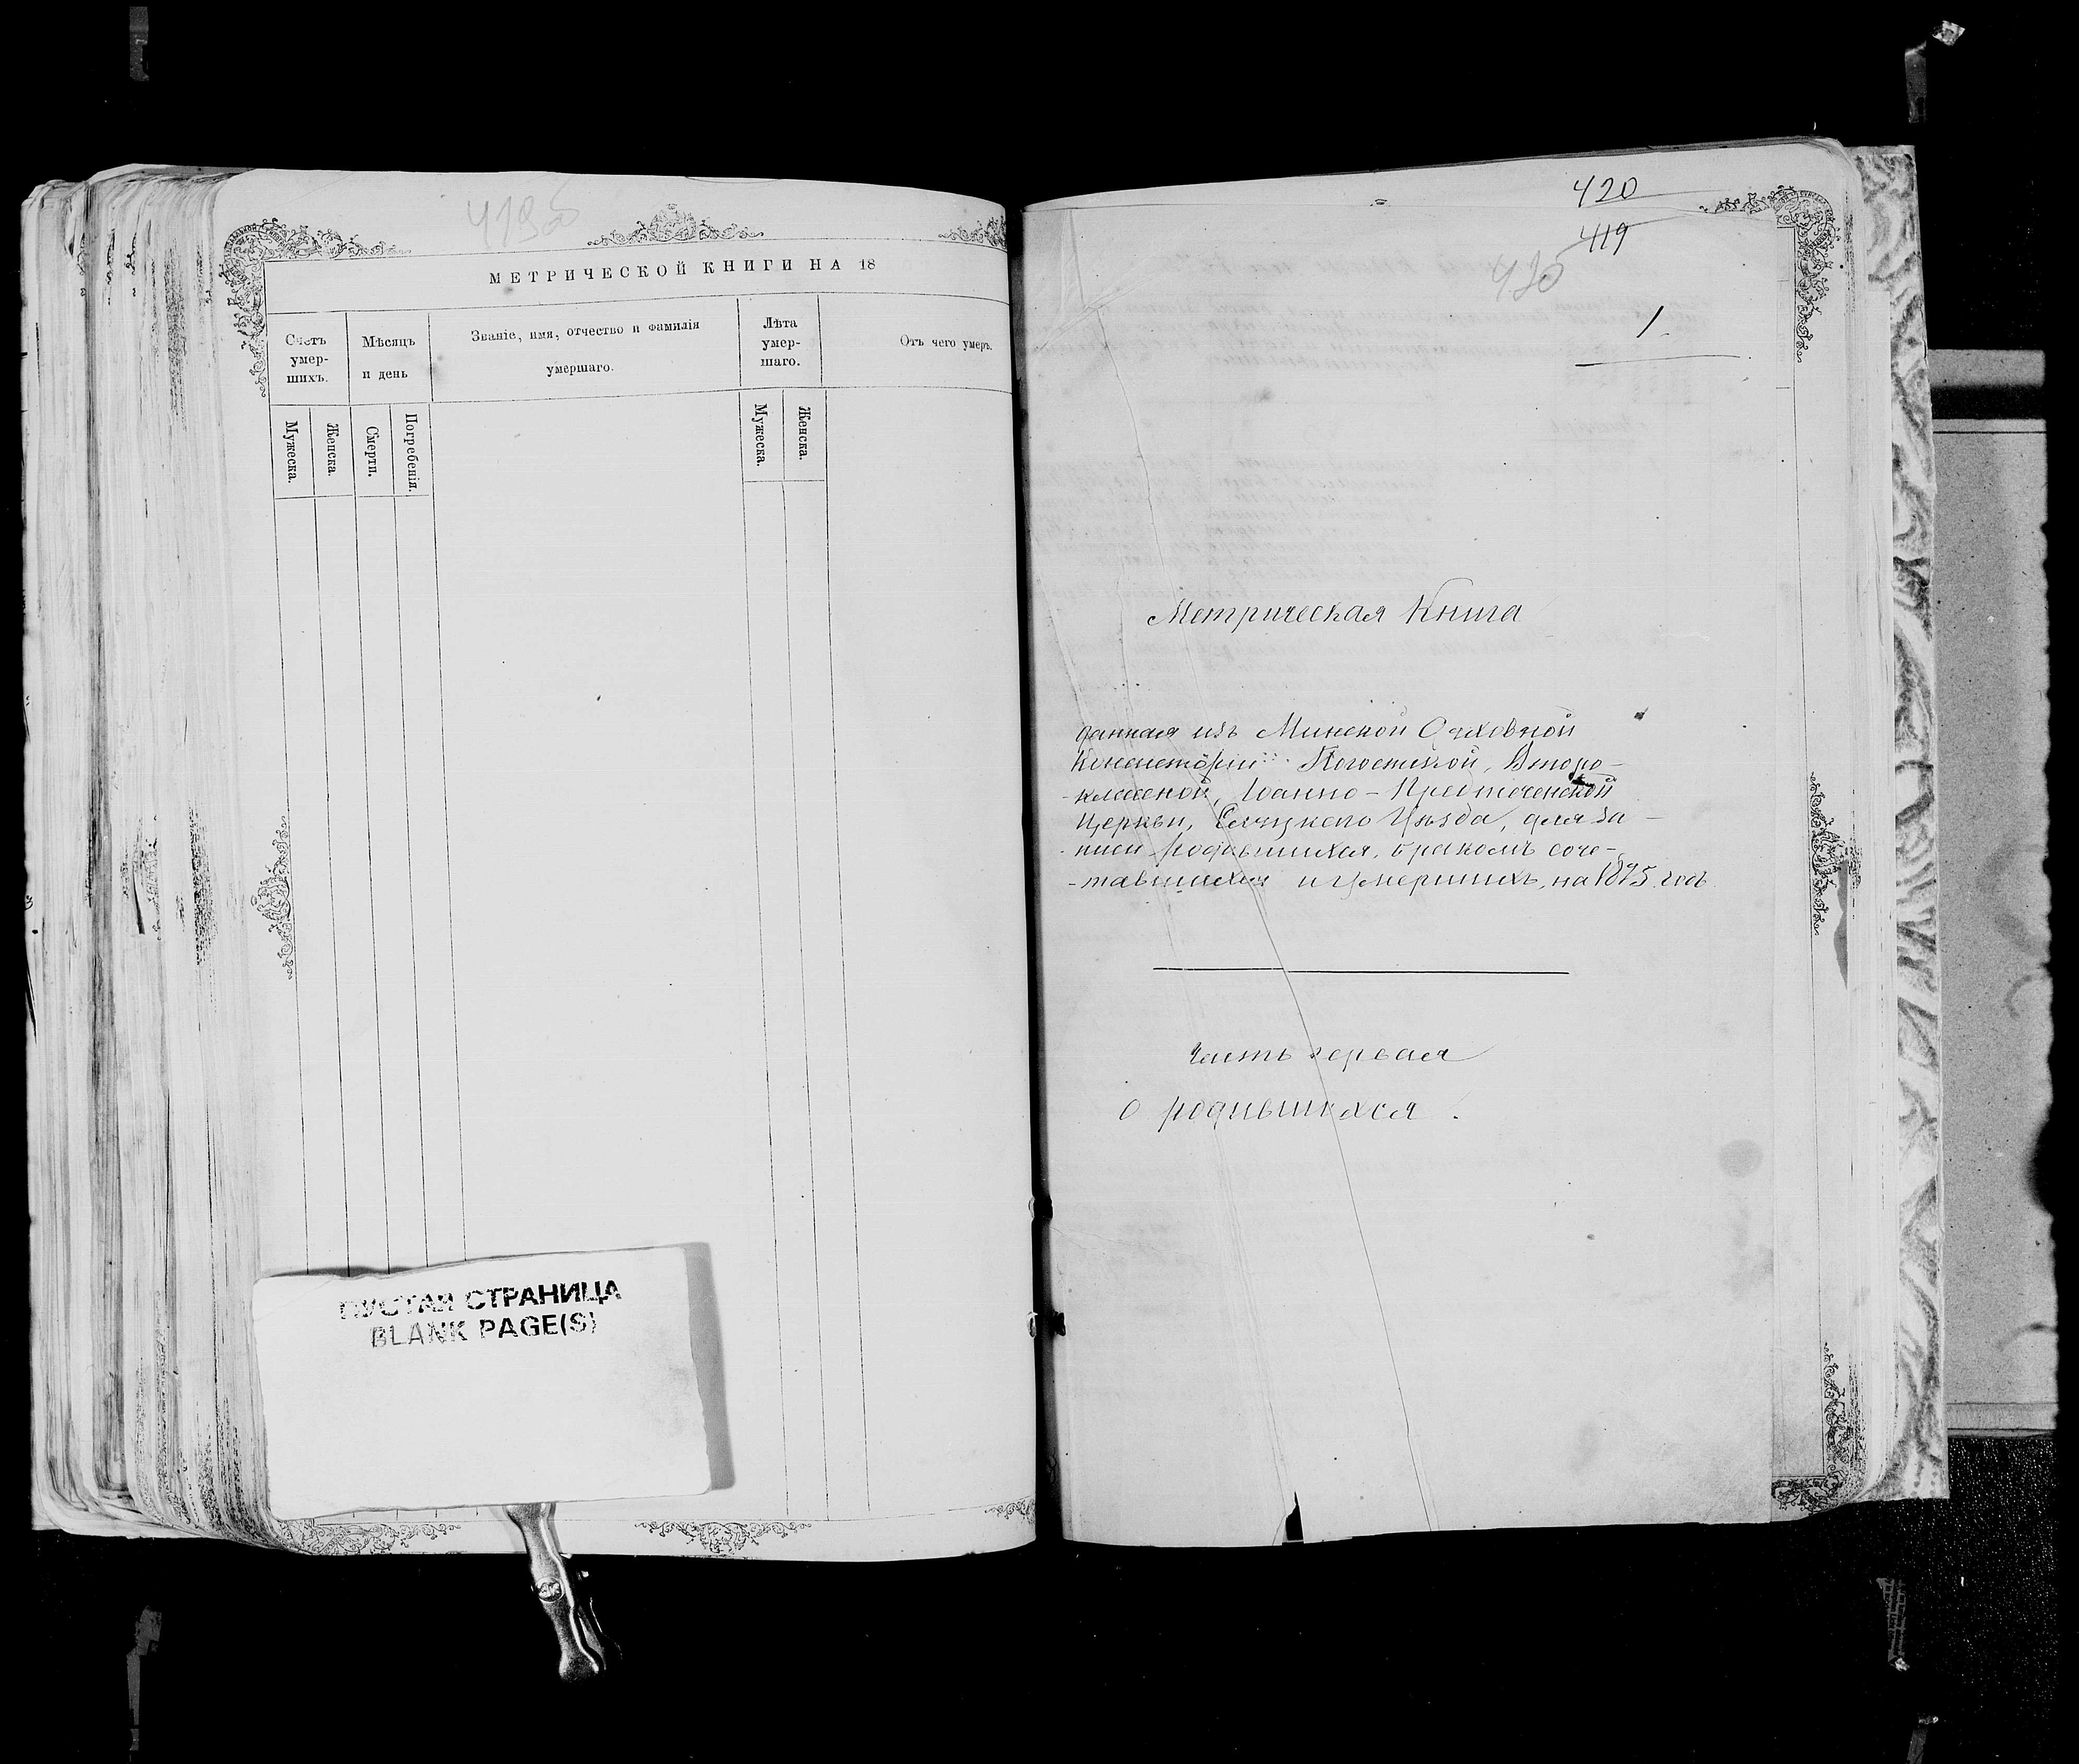 419об
МЕТРИЧЕСКОЙ КНИГИ НА 18
Счетъ умер-шихъ.
Мѣсяцъ и день
Званіе, имя, отчество и фамилія умершаго.
Лѣта умер-шаго.
Отъ чего умеръ.
Мужеска.
Женска.
Смерти.
Погребенія.
Мужеска.
Женска.
ПУСТАЯ СТРАНИЦА
BLANK PAGE(S)
420
419
420
1.
Метрическая Книга
данная изъ Минской Духовной
Консисторіи Погостской, Второ-
-классной, Іоанно-Предтеченской
Церкви, Слуцкаго Уѣзда, для за-
писи родившихся, бракомъ соче-
-тавшихся и умершихъ, на 1875 годъ
Часть первая
о родившихся.